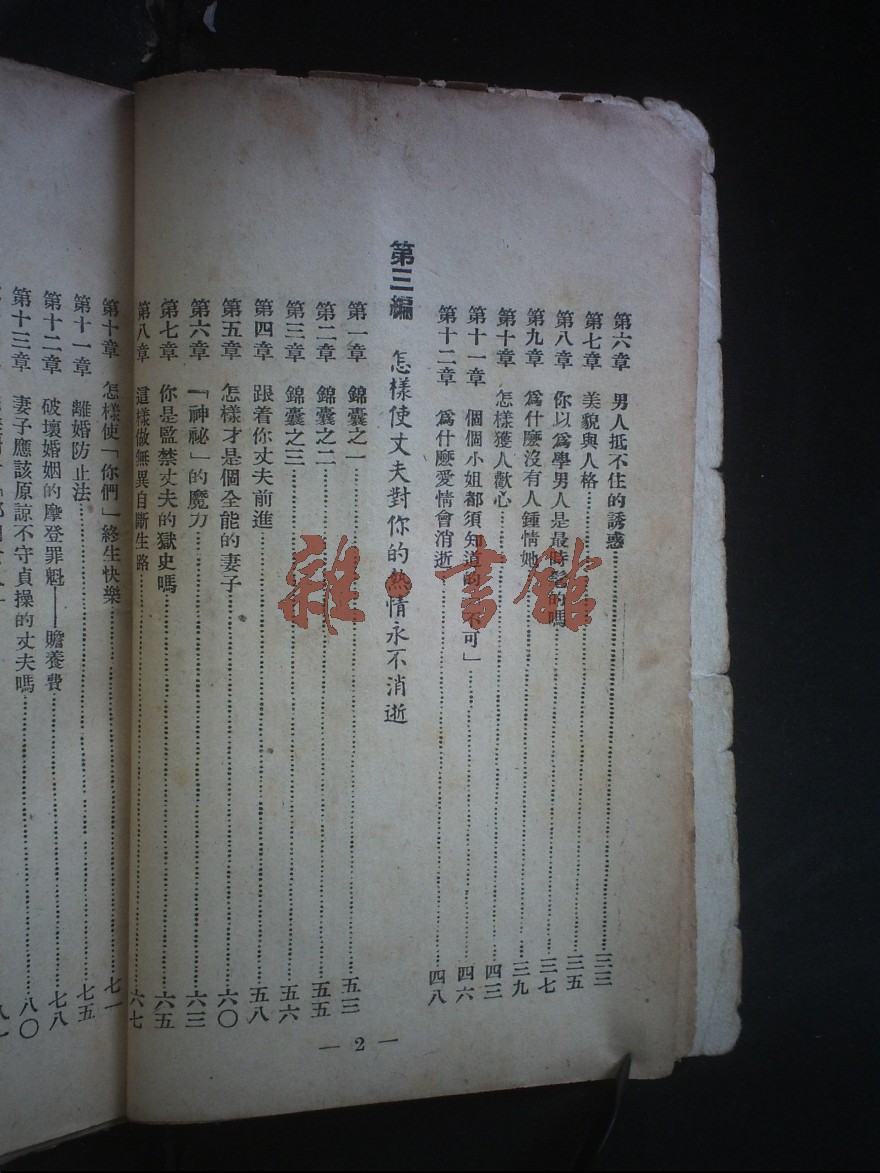 第六章 男人抵不住的誘惑……三三
第七章 美貌與人格……三五
第八章 你以爲學男人是最時髦的嗎……三七
第九章 爲什麼沒有人鍾情她……三九
第十章 怎樣獲人歡心……四三
第十一章 個個小姐都須知道的「不可」……四六
第十二章 爲什麼愛情會消逝……四八
第三編 怎樣使丈夫對你的熱情永不消逝
第一章 錦囊之一……五三
第二章 錦囊之二……五五
第三章 錦囊之三……五六
第四章 跟着你丈夫前進……五八
第五章 怎樣才是個全能的妻子……六〇
第六章 「神祕」的魔力……六三
第七章 你是監禁丈夫的獄史嗎……六五
第八章 這樣做無異自斷生路……六七
第十章 怎樣使「你們」終生快樂……七一
第十一章 離婚防止法……七五
第十二章 破壞婚姻的摩登罪魁——贍養費……七八
第十三章 妻子應該原諒不守貞操的丈夫嗎……八〇
— 2 —
雜·書館